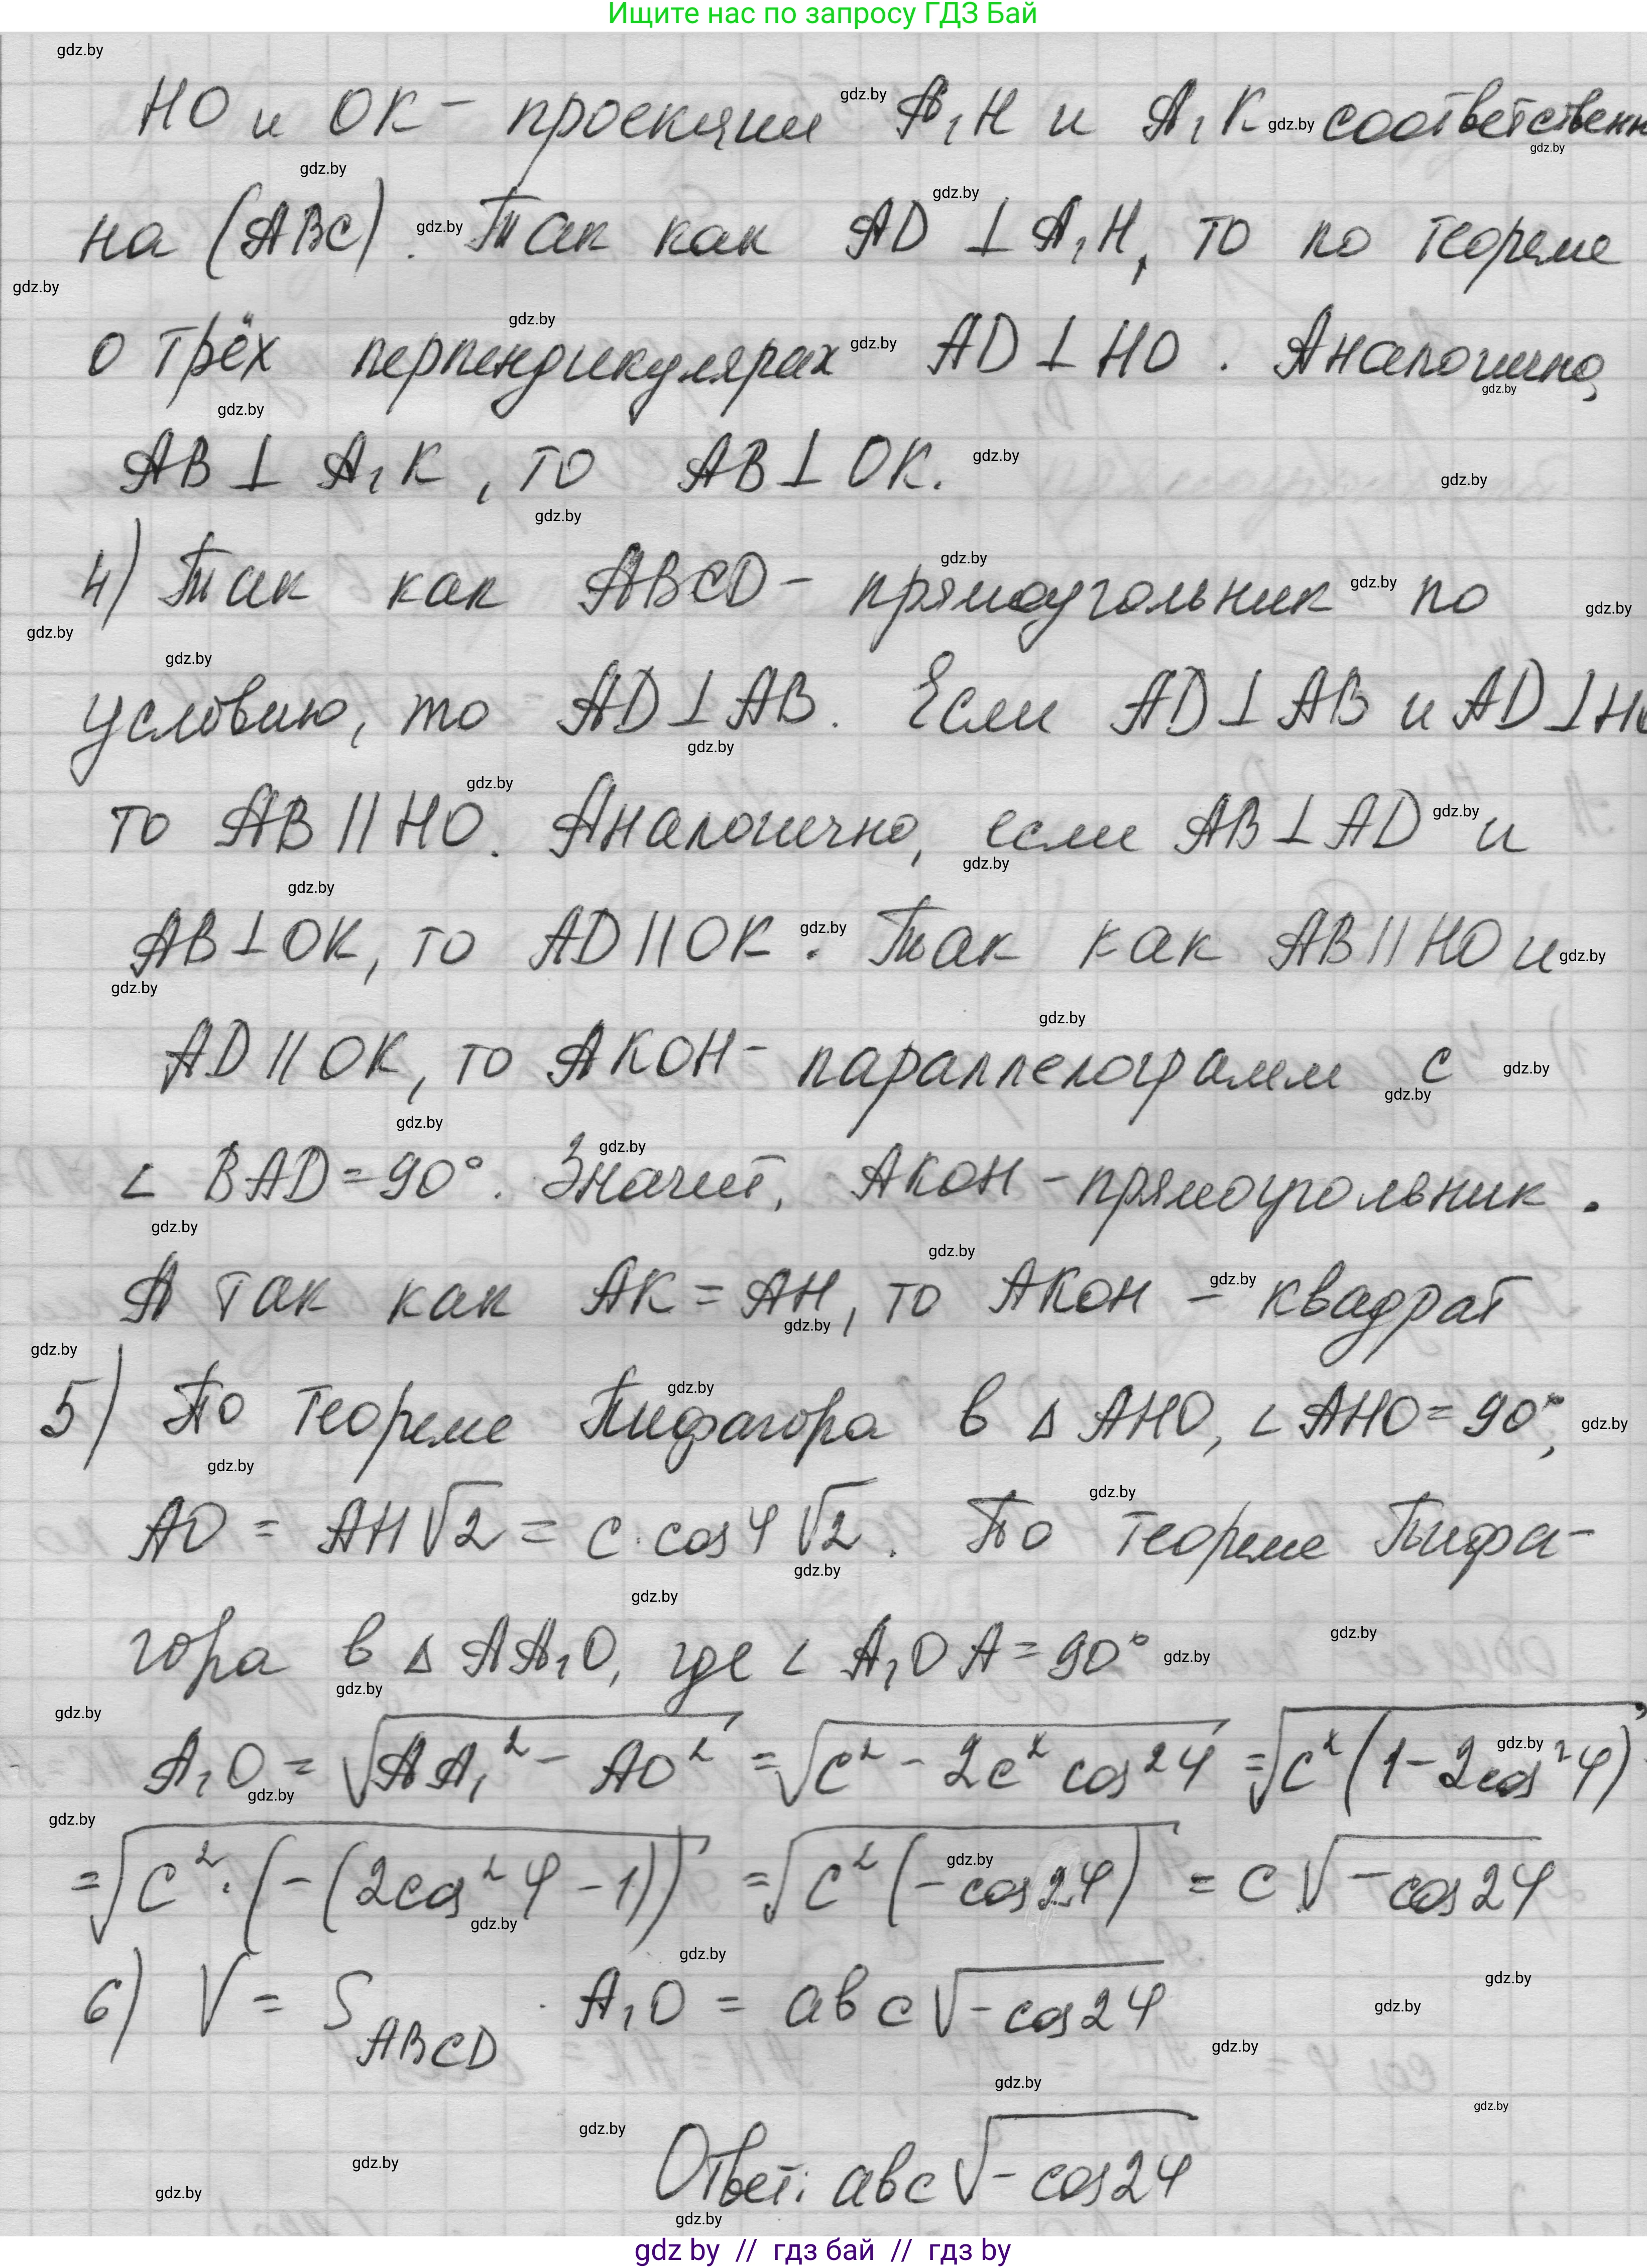 Ищите нас по запросу ГДЗ Бай
HO и OK - проекции A₁H и A₁K соответственн
на (ABC). Так как AD ⊥ A₁H, то по теореме
о трёх перпендикулярах AD ⊥ HO. Аналогично,
AB ⊥ A₁K, то AB ⊥ OK.
4) Так как ABCD - прямоугольник по
условию, то AD ⊥ AB. Если AD ⊥ AB и AD ⊥ HO
то AB || HO. Аналогично, если AB ⊥ AD и
AB ⊥ OK, то AD || OK. Так как AB || HO и
AD || OK, то AKOH - параллелограмм с
∠ BAD = 90°. Значит, AKOH - прямоугольник.
А так как AK = AH, то AKOH - квадрат
5) По теореме Пифагора в Δ AHO, ∠ AHO = 90°,
AO = AH√2 = c · cos φ √2. По теореме Пифа-
гора в Δ AA₁O, где ∠ A₁OA = 90°
A₁O = √(AA₁² - AO²) = √(c² - 2c² cos²φ) = √(c²(1 - 2cos²φ))
= √(c² · (-(2cos²φ - 1))) = √(c²(-cos2φ)) = c√(-cos2φ)
6) V = S_ABCD · A₁O = abc√(-cos2φ)
Ответ: abc√(-cos2φ)
gdz by // гдз бай // гдз by